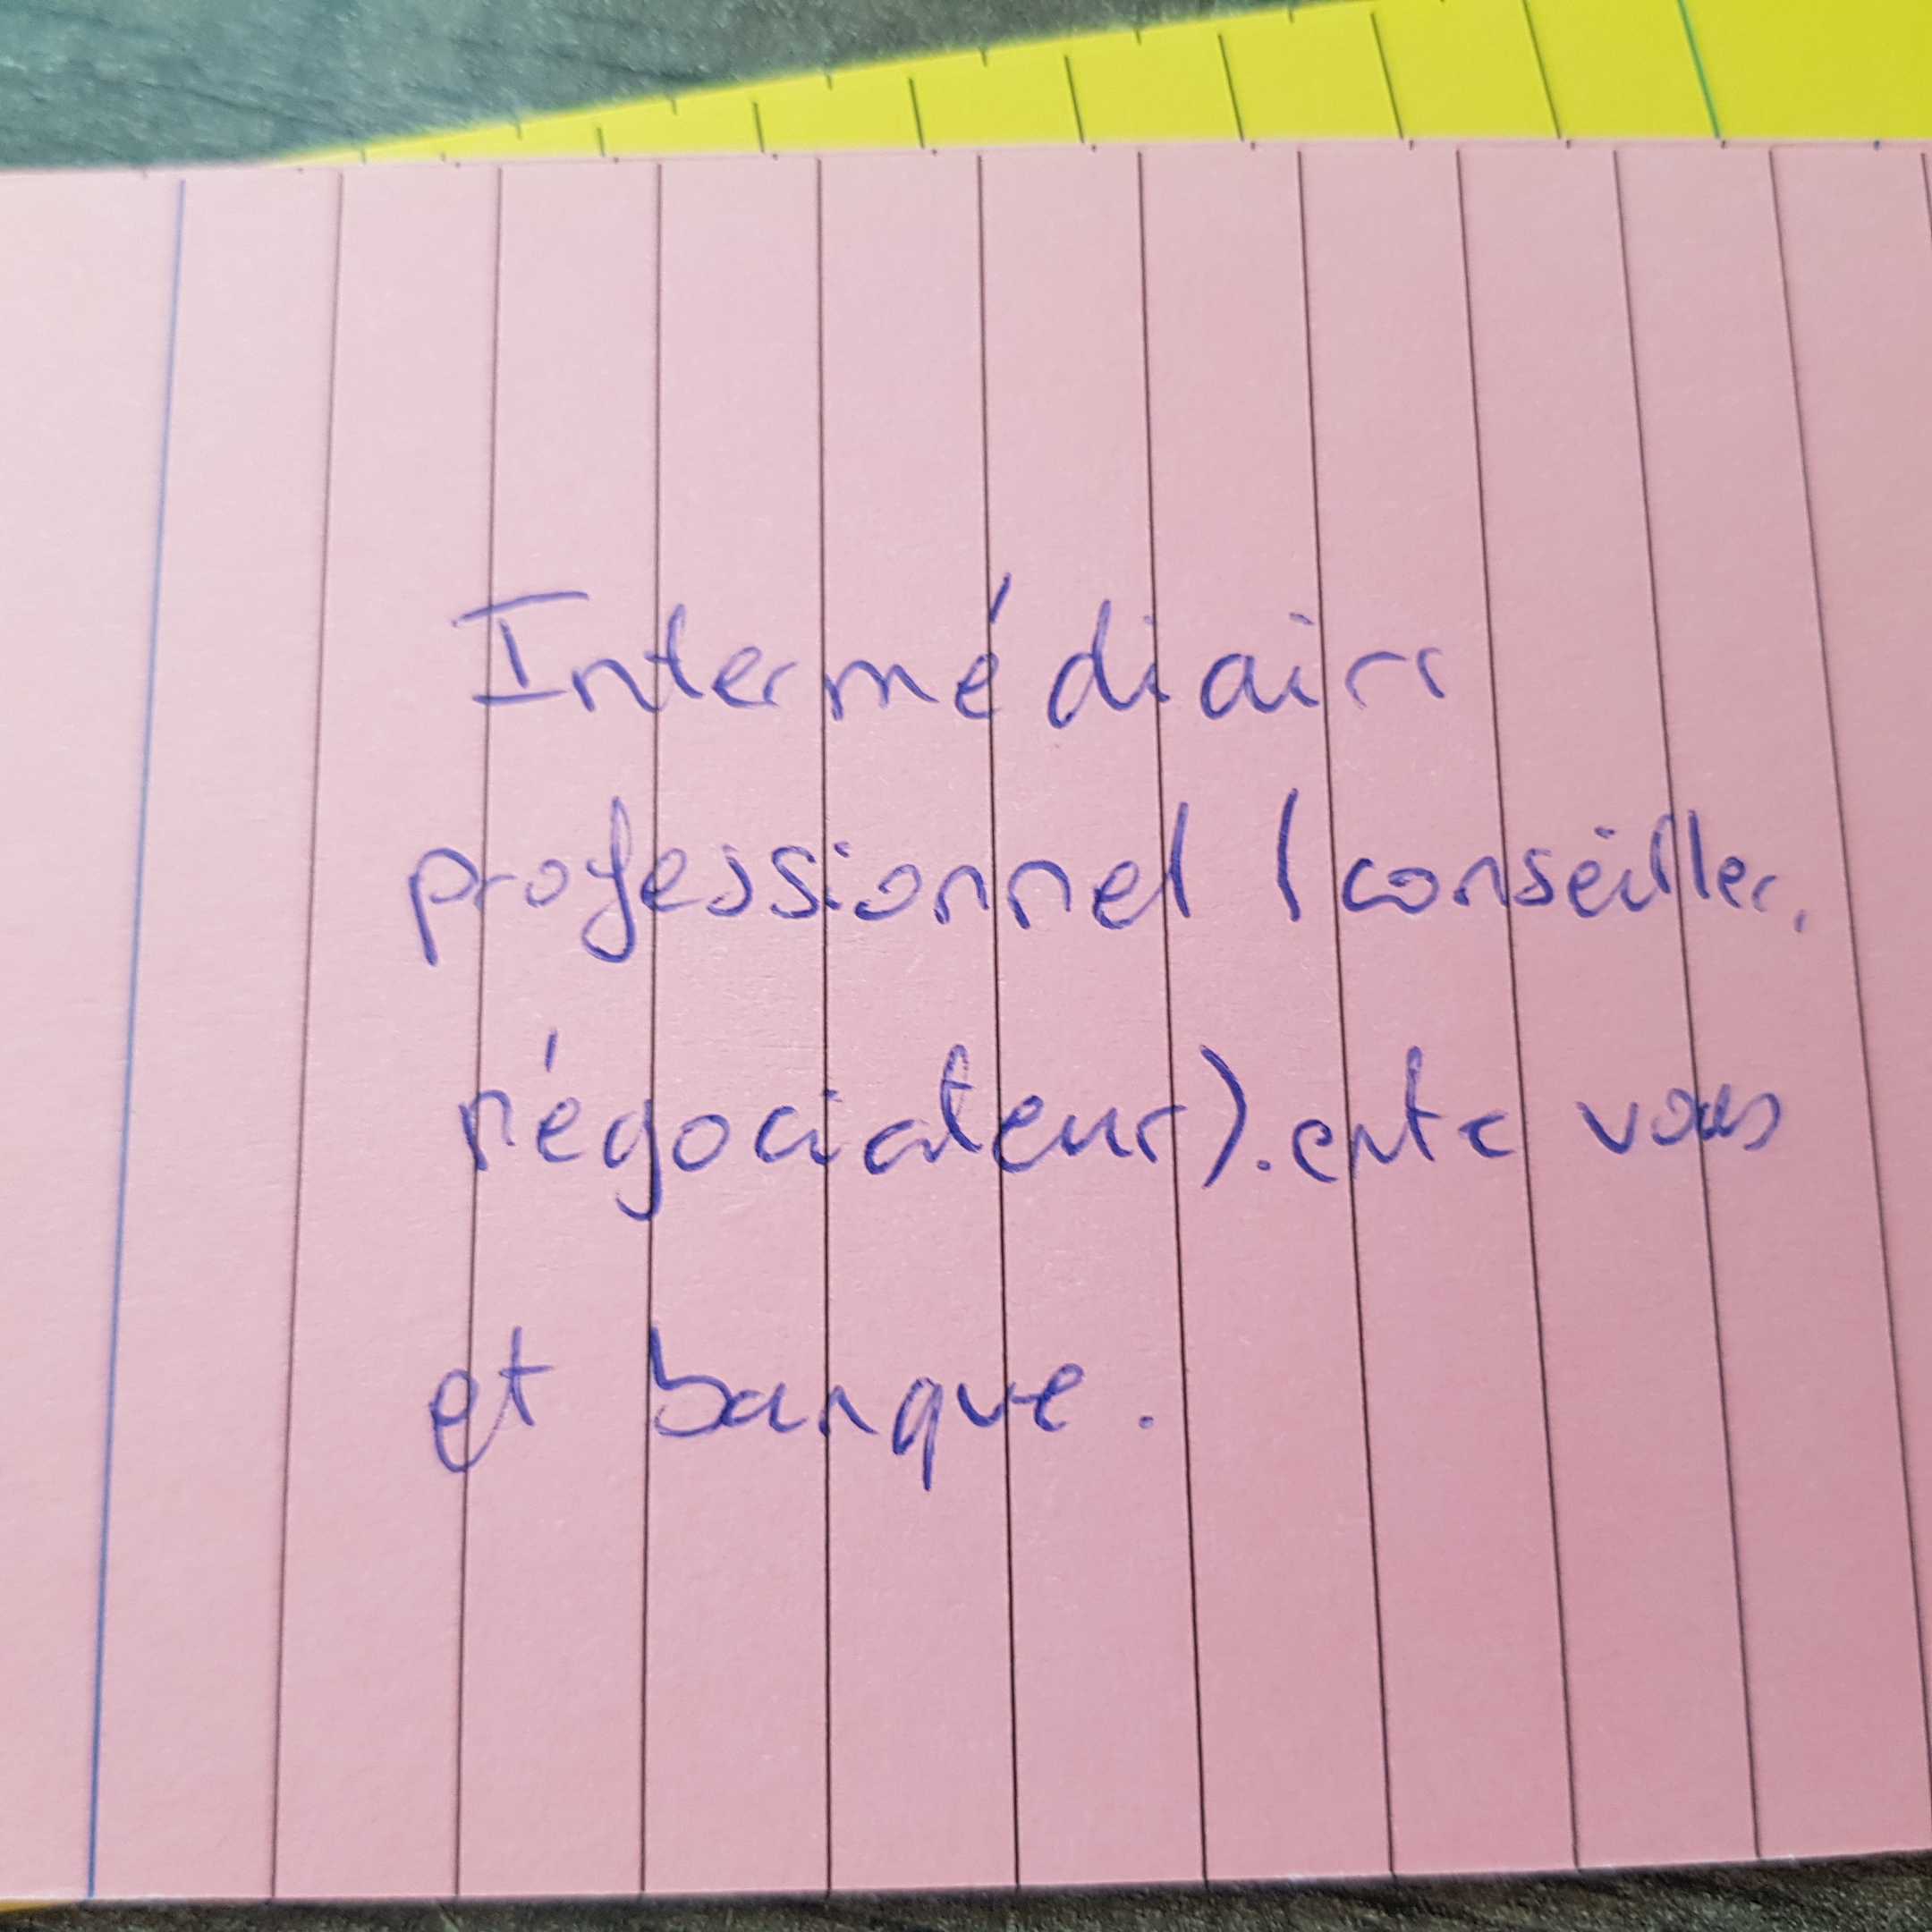 Intermédiaire
professionnel (conseiller,
négociateur). entre vous
et banque.